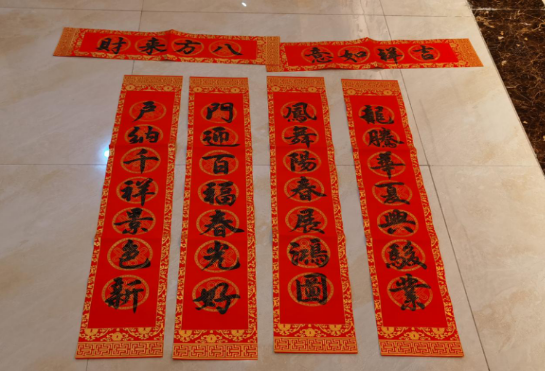 吉祥如意
八方来財
龍騰華夏興駿業
鳳舞陽春展鴻圖
門迎百福春光好
戶納千祥景色新